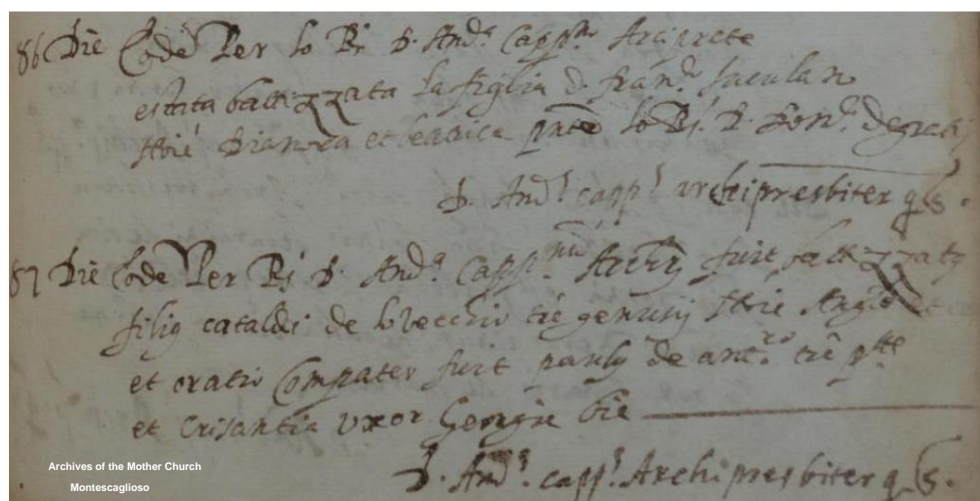 86 Die Eodē Per lo R: D. Andª Cappnu Arciprete
estata battizzata la figlia d. franco
noīe Dianora et beatrice pnte lo R: D. Donº
D. Andª capp archipresbiter q s.
87 Die Eodē Per R: D. Andª Cappnu Archip fuit battizzatꝯ
filiꝯ cataldi de lo Vecchio trē genusij noīe
et oratio Compater fuit paulꝯ de antco trē
et Crisantia Uxor Gorgie
D. Andª capp Archipresbiter q s.
Archives of the Mother Church
Montescaglioso